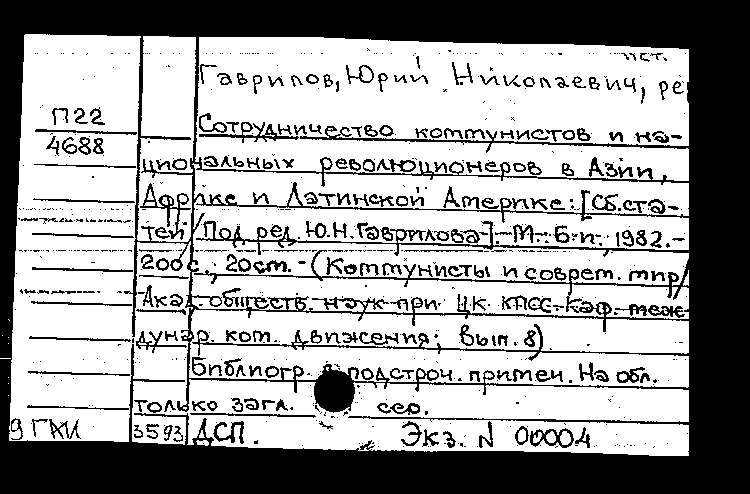 ист.
Гаврилов, Юрий Николаевич, ре
П22
4688
Сотрудничество коммунистов и на-
циональных революционеров в Азии,
Африке и Латинской Америке: [Сб. ста-
тей / Под ред. Ю.Н. Гаврилова]. - М.: Б.и., 1982. -
200 с., 20 см. - (Коммунисты и соврем. мир /
Акад. обществ. наук при ЦК КПСС. Каф. меж-
дунар. ком. движения; Вып. 8)
Библиогр. в подстроч. примеч. На обл.
только загл. сер.
9 ГАИ 3593 ДСП. Экз. N 00004